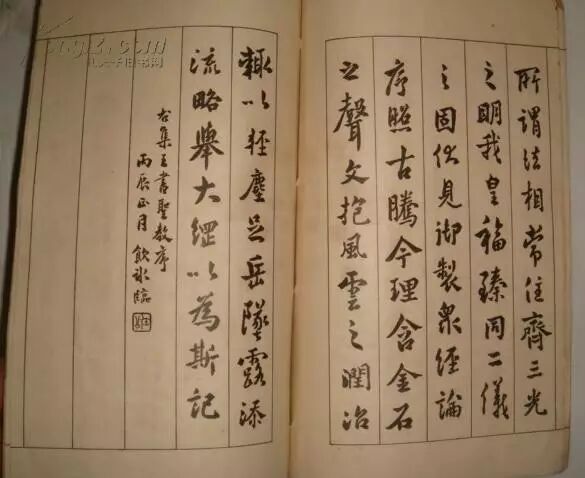 所謂法相常住齊三光
之明我皇福臻同二儀
之固伏見御製衆經論
序照古騰今理含金石
之聲文抱風雲之潤治
輒以輕塵足岳墜露添
流略舉大綱以為斯記
右集王書聖教序
丙辰正月飲冰臨